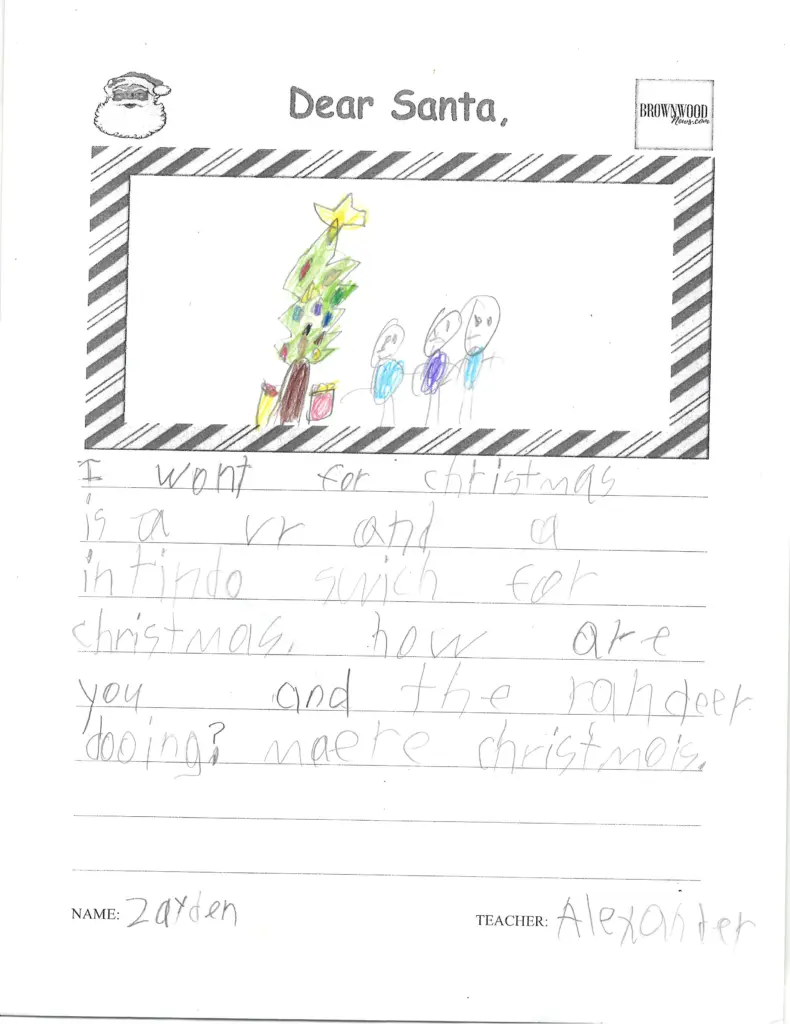 Dear Santa,
BROWNWOOD
News.com
I wont for christmas
is a vr and a
intindo swich for
christmas. how are
you and the randeer
dooing? maere christmois.
NAME: Zayden
TEACHER: Alexander